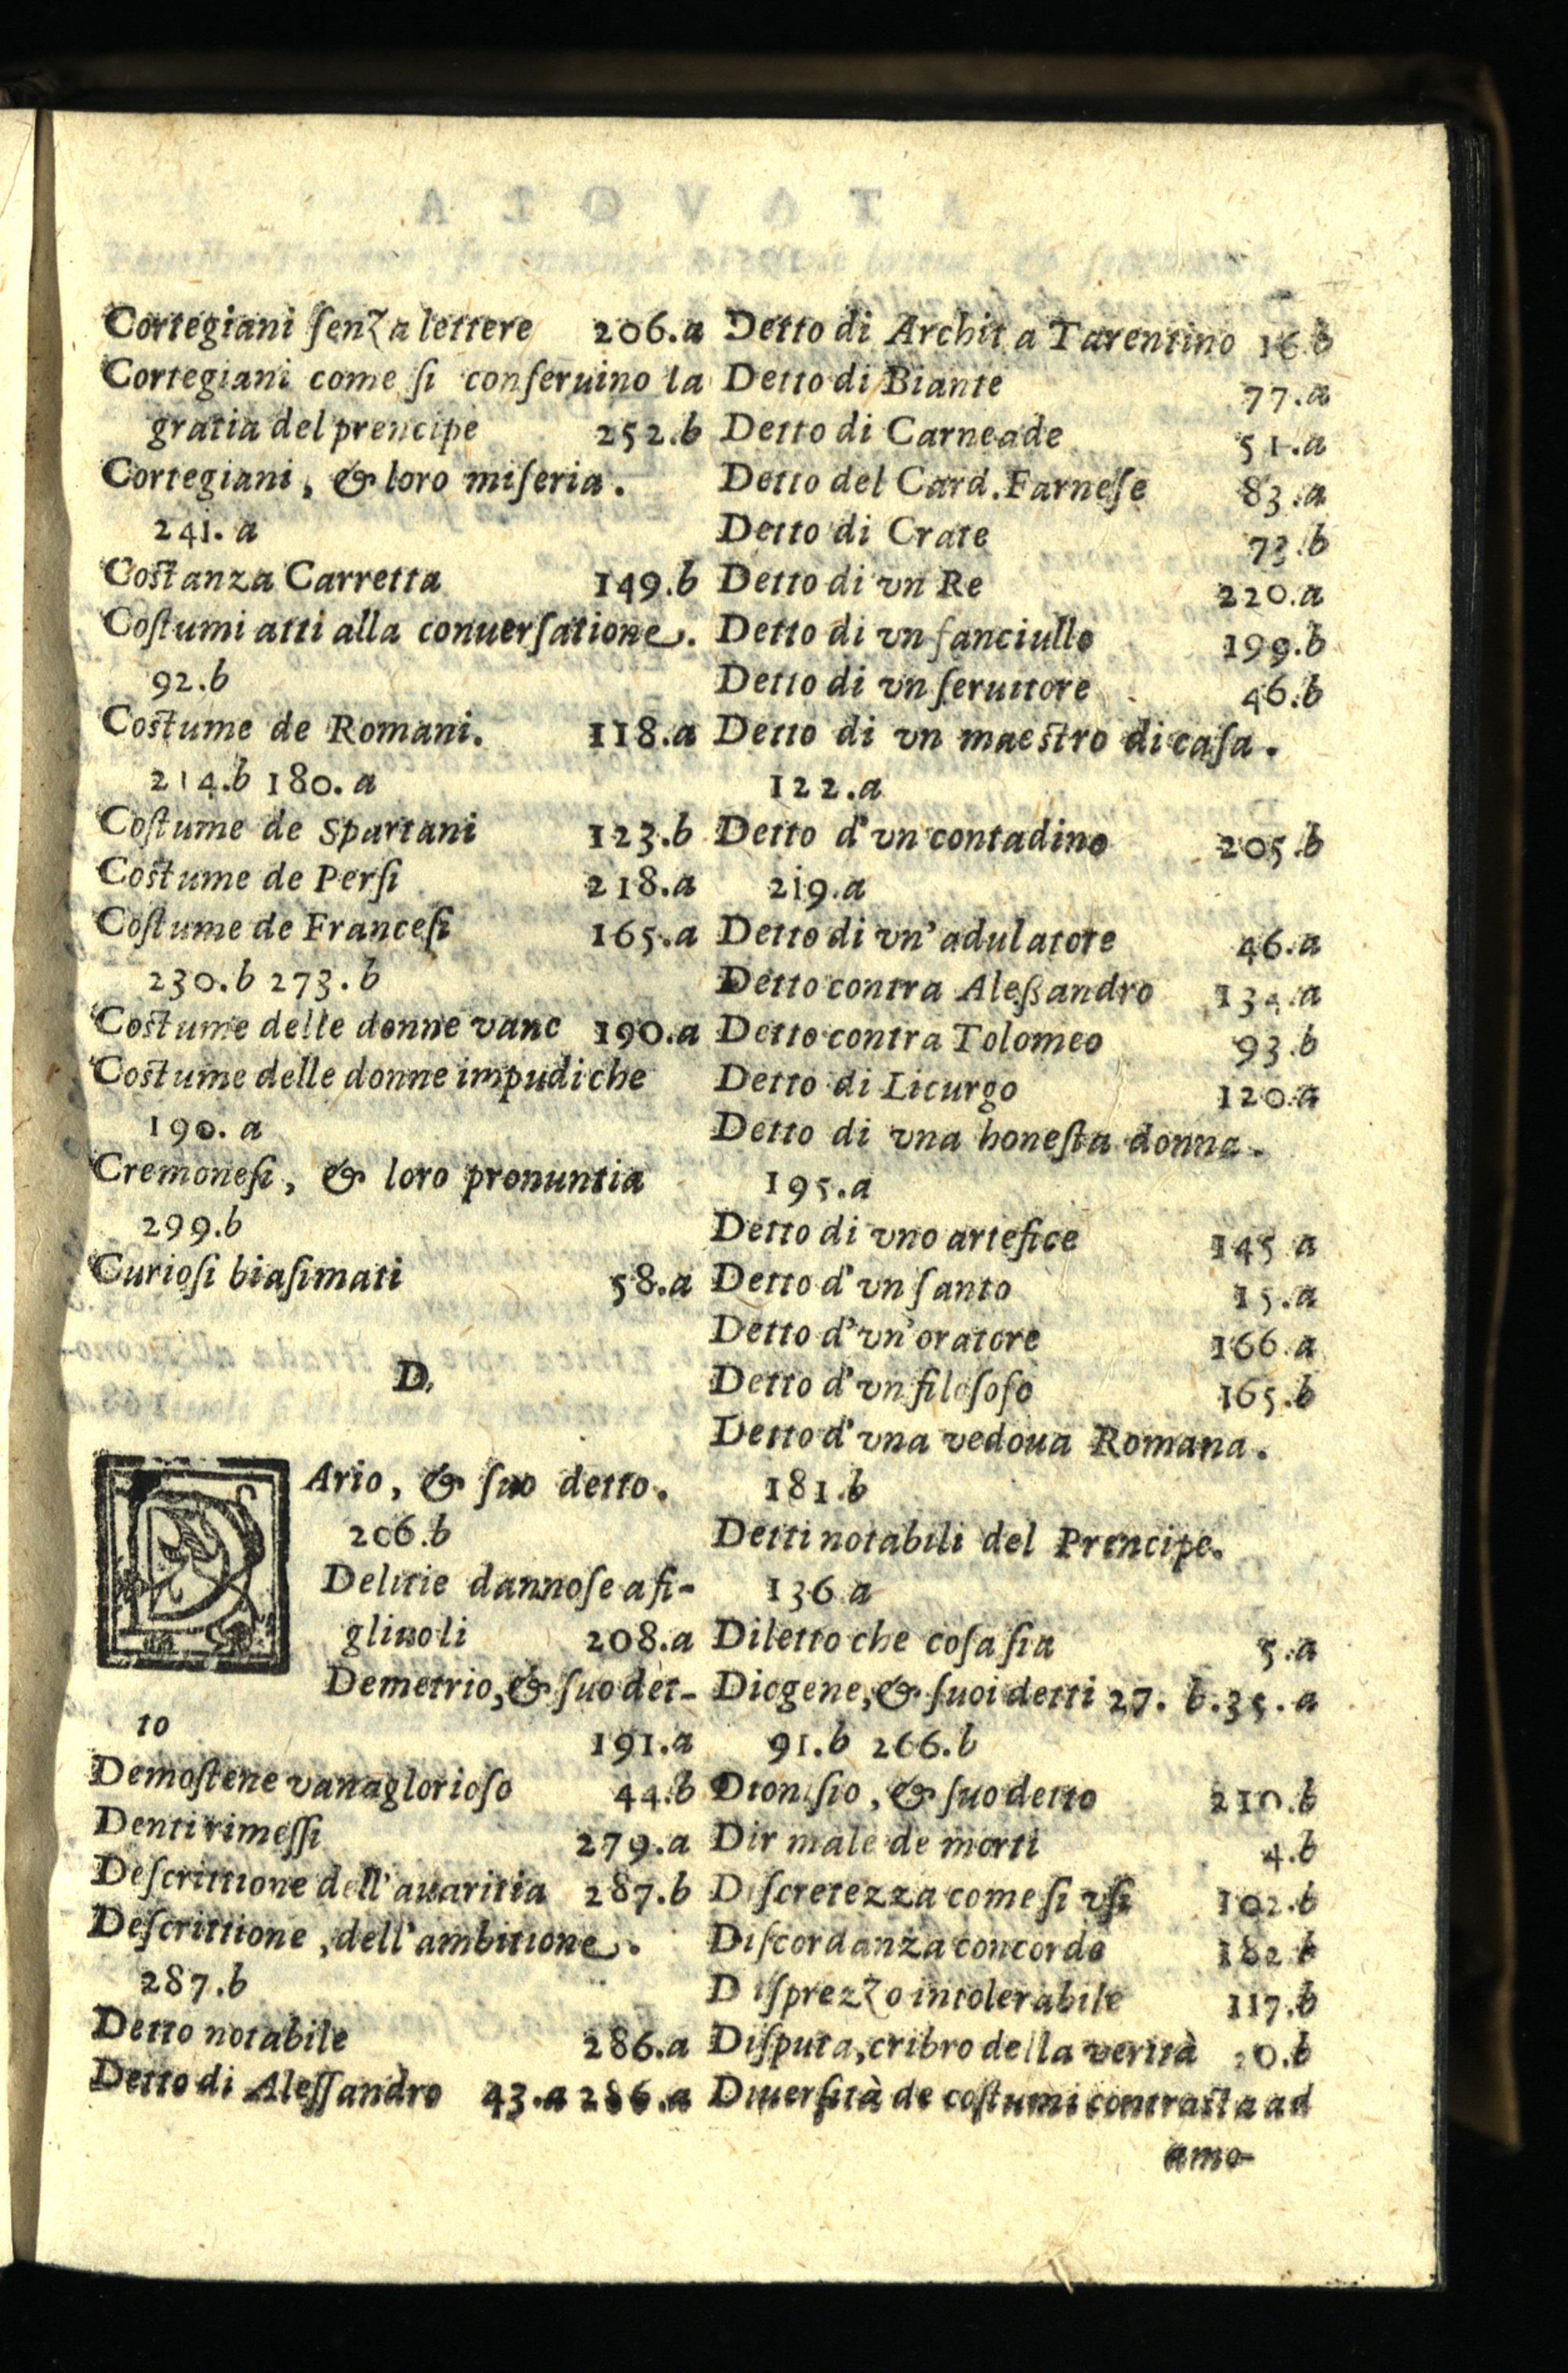 Cortegiani ſenza lettere 206.a
Cortegiani come ſi conſeruino la
gratia del prencipe 252.b
Cortegiani, & loro miſeria.
241. a
Coſtanza Carretta 149.b
Coſtumi atti alla conuerſatione.
92.b
Coſtume de Romani. 118.a
214.b 180. a
Coſtume de Spartani 123.b
Coſtume de Perſi 218.a
Coſtume de Franceſi 165.a
230.b 273.b
Coſtume delle donne vane 190.a
Coſtume delle donne impudiche
190. a
Cremoneſi, & loro pronuntia
299.b
Curioſi biaſimati 58.a
D.
DArio, & ſuo detto.
206.b
Delitie dannoſe a fi-
gliuoli 208.a
Demetrio, & ſuo det-
to 191.a
Demoſtene vanaglorioſo 44.b
Denti rimeſſi 279.a
Deſcrittione dell'auaritia 287.b
Deſcrittione, dell'ambitione.
287.b
Detto notabile 286.a
Detto di Aleſſandro 43.a 286.a
Detto di Archita Tarentino 16.b
Detto di Biante 77.a
Detto di Carneade 51.a
Detto del Card. Farneſe 83.a
Detto di Crate 73.b
Detto di vn Re 220.a
Detto di vn fanciullo 199.b
Detto di vn ſeruitore 46.b
Detto di vn maeſtro di caſa.
122.a
Detto d'vn contadino 205.b
219.a
Detto di vn'adulatore 46.a
Detto contra Aleßandro 134.a
Detto contra Tolomeo 93.b
Detto di Licurgo 120.a
Detto di vna honeſta donna.
195.a
Detto di vno artefice 145 a
Detto d'vn ſanto 15.a
Detto d'vn'oratore 166.a
Detto d'vn filoſofo 165.b
Detto d'vna vedoua Romana.
181.b
Detti notabili del Prencipe.
136 a
Diletto che coſa ſia 5.a
Diogene, & ſuoi detti 27. b.35.a
91.b 266.b
Dioniſio, & ſuo detto 210.b
Dir male de morti 4.b
Diſcretezza come ſi vſi 102.b
Diſcordanza concorde 182.b
Diſprezzo intolerabile 117.b
Diſputa, cribro della verità 20.b
Diuerſità de coſtumi contraſta ad
amo-